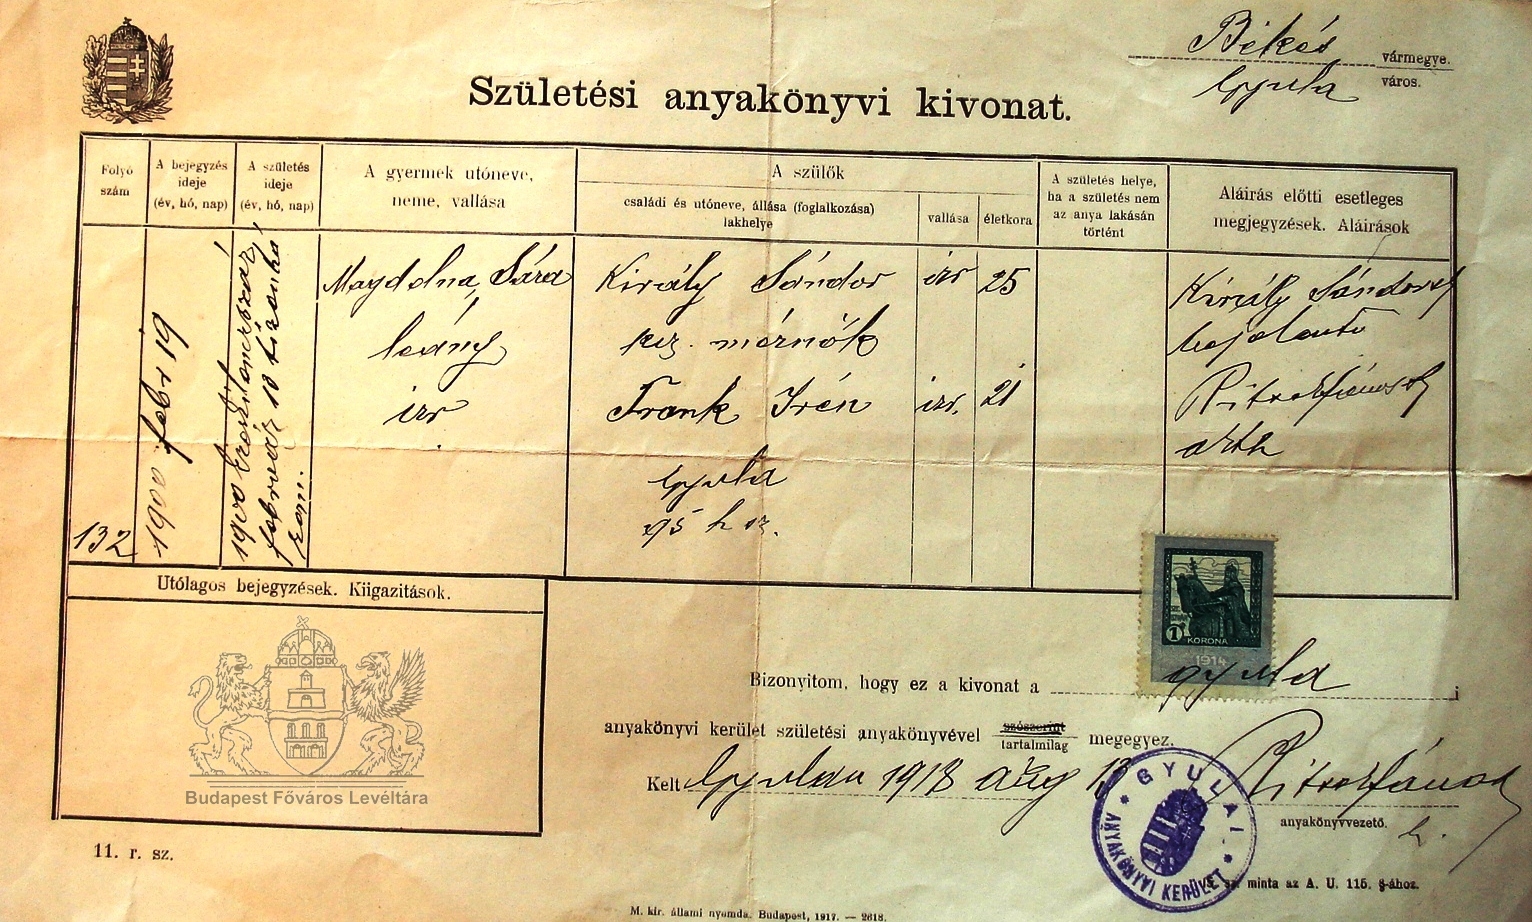 Békés vármegye.
Gyula város.
Születési anyakönyvi kivonat.
Folyó szám
A bejegyzés ideje (év, hó, nap)
A születés ideje (év, hó, nap)
A gyermek utóneve, neme, vallása
A szülők
családi és utóneve, állása (foglalkozása) lakhelye
vallása
életkora
A születés helye, ha a születés nem az anya lakásán történt
Aláírás előtti esetleges megjegyzések. Aláírások
132
1900 febr 19
1900 ezerkilencszáz
február 10 tizediki
Magdolna, Sára
leány
izr
Király Sándor izr 25
mérnök
Frank Irén izr. 21
Gyula
95 h sz.
Király Sándor
bejelentő
akv
Utólagos bejegyzések. Kiigazitások.
Budapest Főváros Levéltára
1 KORONA
1914
Bizonyitom, hogy ez a kivonat a Gyula i
anyakönyvi kerület születési anyakönyvével szószerint tartalmilag megegyez.
Kelt Gyulán 1918 aug 13
anyakönyvvezető.
h.
GYULAI
ANYAKÖNYVI KERÜLET
11. r. sz.
sz. minta az A. U. 115. §-ához.
M. kir. állami nyomda. Budapest, 1917. — 2618.